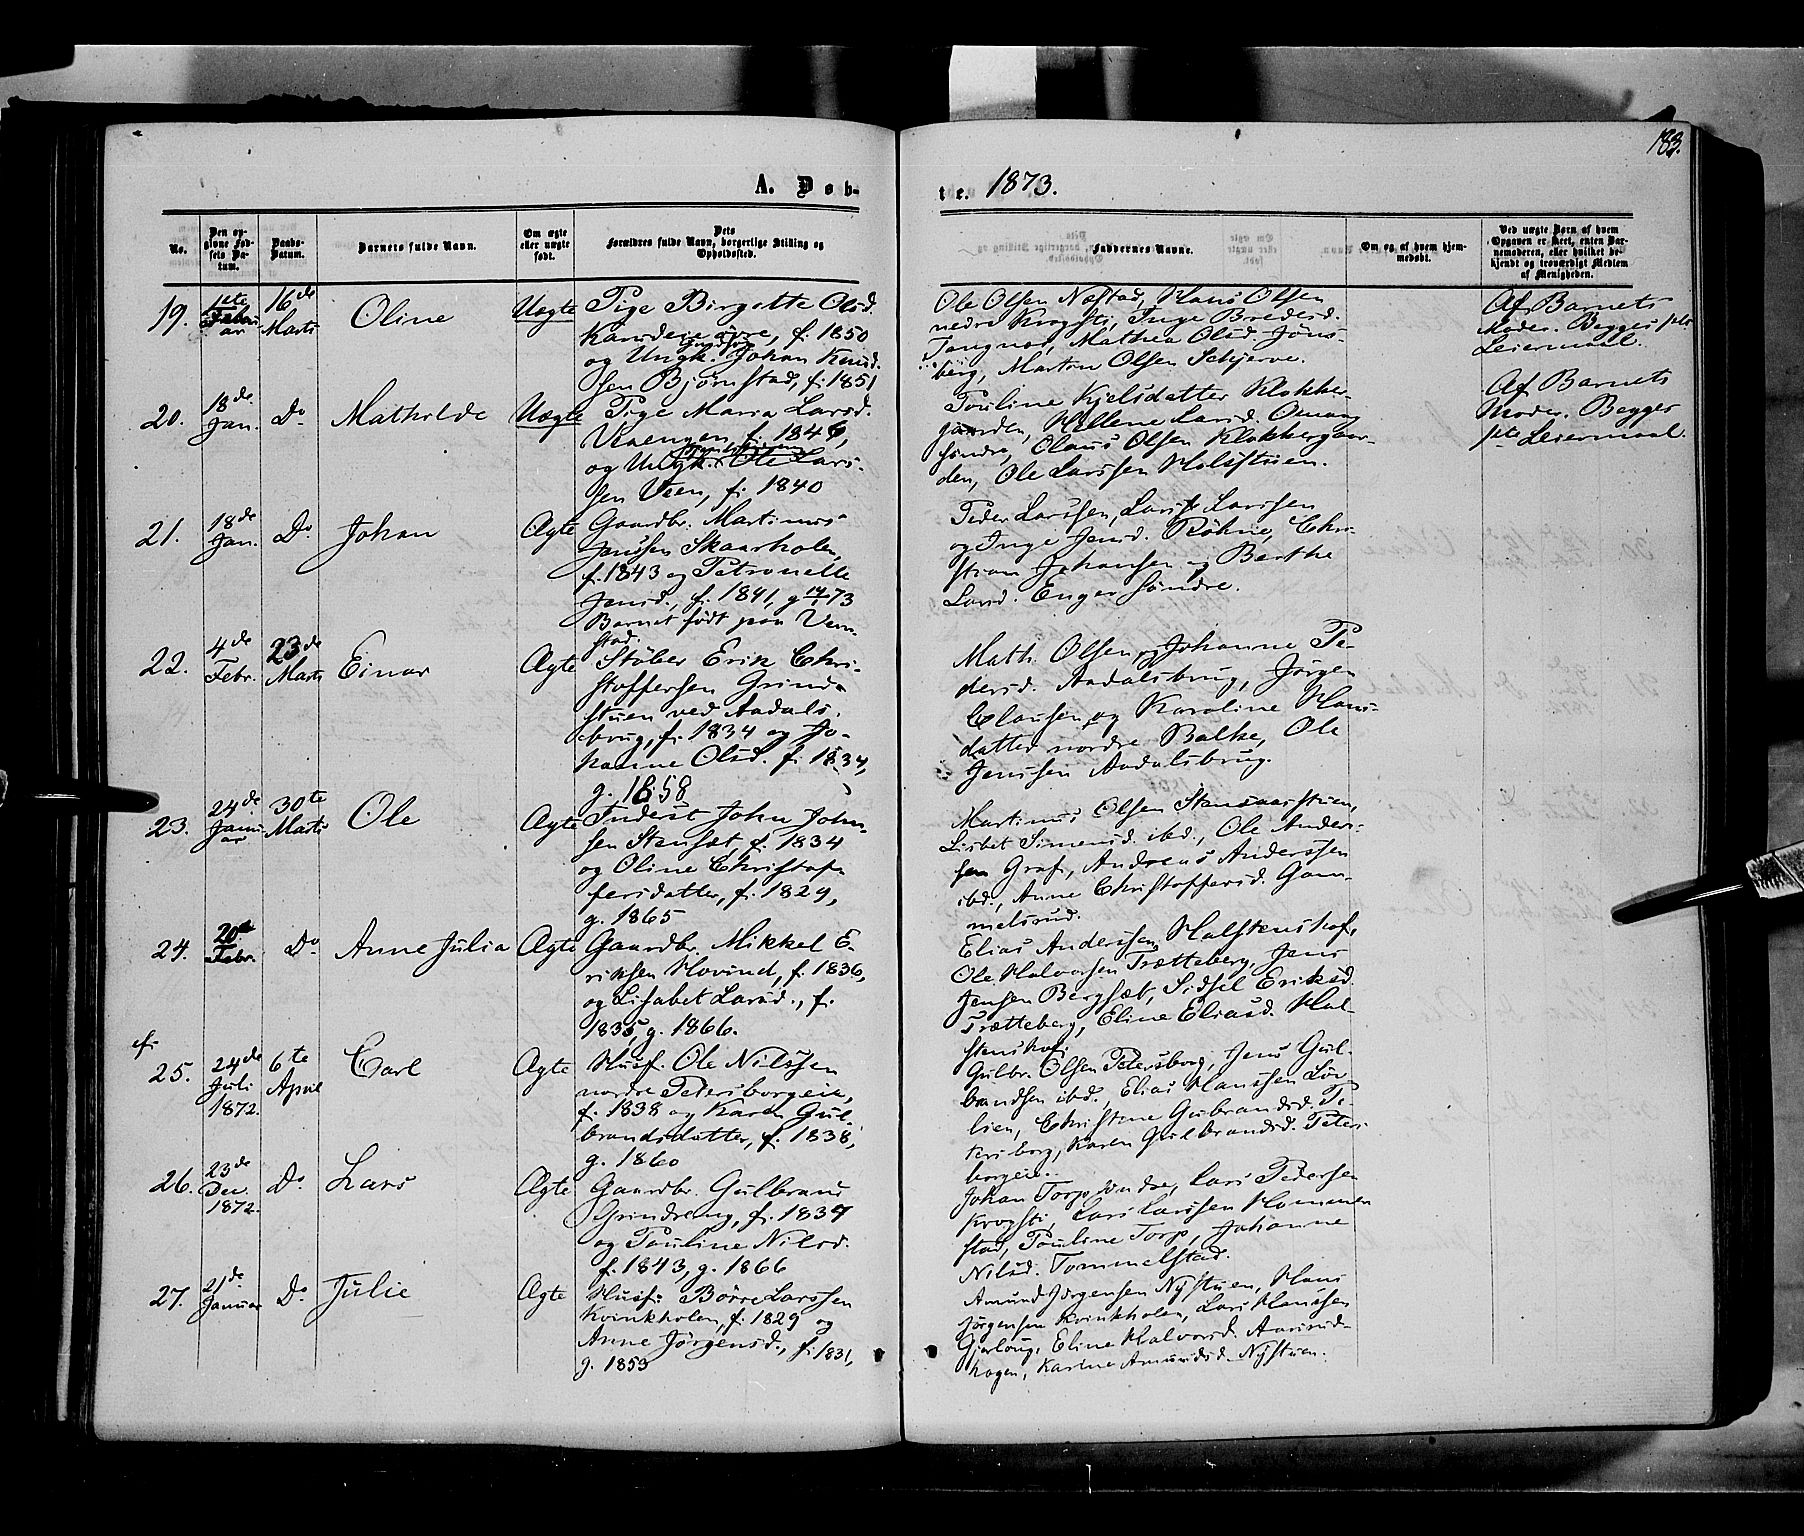 183.
A. Døb-
te. 1873.
No.
Den op-
givne Fød-
sels Da-
tum.
Daabs-
Datum.
Barnets fulde Navn.
Om ægte
eller uægte
født.
Dets
Forældres fulde Navn, borgerlige Stilling og
Opholdssted.
Faddernes Navne.
Om og af hvem hjem-
medøbt.
Ved uægte Børn af hvem
Opgaven er skeet, enten Bar-
nemoderen, eller hvilket be-
kjendt og troværdigt Medlem
af Menigheden.
19.
1ste
Februar
16de
Marts
Oline
Uægte
Pige Birgette Olsd.
øvre, f. 1850
og Ungk. Johan Knud-
sen Bjørnstad, f. 1851
Ole Olsen Næstad, Hans Olsen
nedre Krogsti, Inge Bredesd.
Tangnæs, Mathea Olsd. Jøns-
berg, Marton Olsen Schjerve.
Af Barnets
Moder. Begges 1ste
Leiermaal.
20.
18de
Jan.
Do
Mathilde
Uægte
Pige Maria Larsd.
Veaengen f. 1846,
og Ungk. Ole Lars-
sen Veen, f. 1840
Pouline Kjelsdatter Klokker-
gaarden, Hellene Larsd. Omang
søndre, Olaus Olsen Klokkergaar-
den, Ole Larssen Holsstuen.
Af Barnets
Moder. Begges
1ste Leiermaal.
21.
18de
Jan.
Do
Johan
Ægte
Gaardbr. Martinus
Janssen Skaarholen,
f. 1843 og Petronelle
Jensd., f. 1841, g 73
Barnet født paa Vem-
stad.
Peder Larssen, Lars Larssen
og Inge Jensd. Røhne, Chri-
stian Johansen og Berthe
Larsd. Enger søndre.
22.
4de
Febr.
23de
Marts
Einar
Ægte
Støber Erik Chri-
stoffersen Grind-
stuen ved Aadals-
brug, f. 1834 og Jo-
hanne Olsd. f. 1834,
g. 1858
Math. Olsen og Johanne Pe-
dersd. Aadalsbrug, Jørgen
Clausen og Karoline Hans-
datter nordre Balke, Ole
Jenssen Aadalsbrug.
23.
24de
Janu-
ar
30te
Marts
Ole
Ægte
Inderst John John-
sen Stensæt, f. 1834
og Oline Christof-
fersdatter, f. 1829,
g. 1865
Martinus Olsen
Lisbet Simensd. ibd., Ole Anders-
sen Graf, Andreas Anderssen
ibd., Anne Christoffersd. Gam-
melsrud.
24.
20de
Febr.
Do
Anne Julia
Ægte
Gaardbr. Mikkel E-
riksen Hovind, f. 1836,
og Lisabet Larsd., f.
1835, g. 1866.
Elias Anderssen Halstenshof,
Ole Halvorsen Trætteberg, Jens
Jensen Bergsæt, Sidsel Eriksd.
Trætteberg, Eline Eliasd. Hal-
stenshof.
25.
24de
Juli
1872.
6te
April
Carl
Ægte
Husf. Ole Nilssen
nordre Petersborgeie,
f. 1838 og Karen Gul-
brandsdatter, f. 1838,
g. 1860
Gulbr. Olsen Petersborg, Jens Gul-
bandsen ibd., Elias Hanssen Løv-
lien, Christine Gubrandsd. Pe-
tersborg, Karen Gulbrandsd. Peters-
borgeie.
26.
23de
Dec.
1872.
Do
Lars
Ægte
Gaardbr.
Grindreng, f. 1837
og Pauline Nilsd.
f. 1843, g. 1866
Johan Torp søndre, Lars Pedersen
Krogsti, Lars Larssen Hommen-
stad, Pauline Torp, Johanne
Nilsd. Tommelstad.
27.
21de
Januar
Do
Julie
Ægte
Husf. Børre Larssen
Kvinkholen, f. 1829 og
Anne Jørgensd., f. 1831,
g. 1853
Amund Jørgensen Nystuen, Hans
Jørgensen Kvinkholen, Lars Hanssen
Gjørlaug, Eline Halvorsd. Aasrud-
hagen, Karine Amundsd. Nystuen.